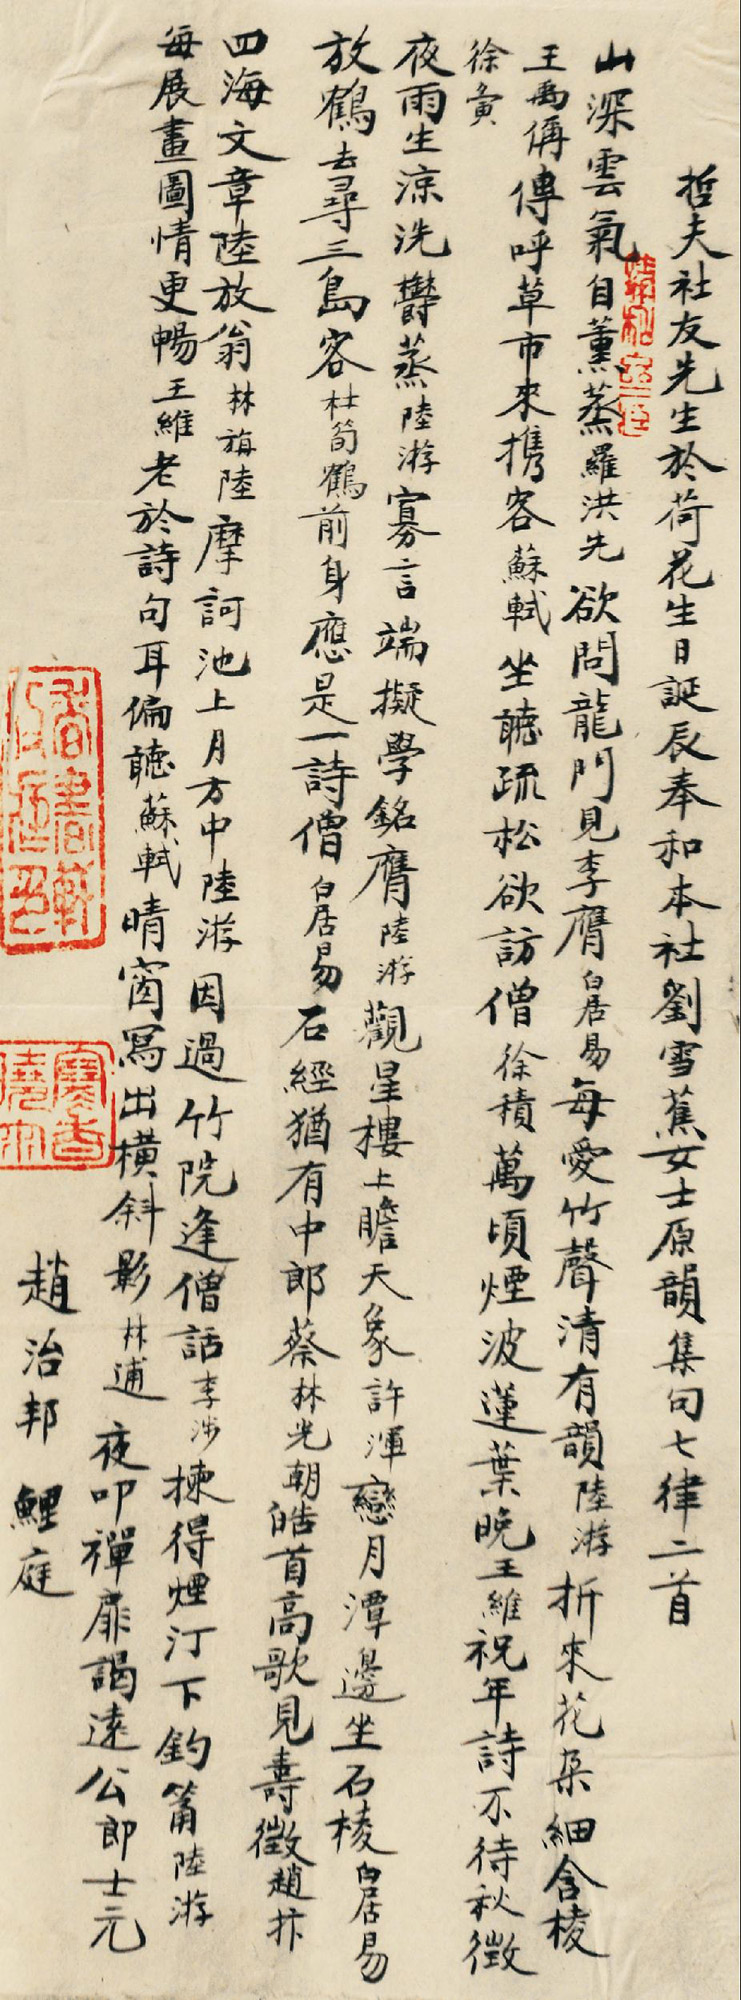 哲夫社友先生於荷花生日誕辰奉和本社劉雪蕉女士原韻集句七律二首
山深雲氣自薰蒸羅洪先欲問龍門見李膺白居易每愛竹聲清有韻陸游折來花朵細含棱
王禹偁傳呼草市來攜客蘇軾坐聽疏松欲訪僧徐積萬頃煙波蓮葉晚王維祝年詩不待秋徵
徐夤
夜雨生涼洗鬱蒸陸游寡言端擬學銘膺陸游觀星樓上瞻天象許渾戀月潭邊坐石棱白居易
放鶴去尋三島客杜荀鶴前身應是一詩僧白居易石經猶有中郎蔡林光朝皓首高歌見壽徵趙抃
四海文章陸放翁林旃陸摩訶池上月方中陸游因過竹院逢僧話李涉揀得煙汀下釣筩陸游
每展畫圖情更暢王維老於詩句耳偏聽蘇軾晴窗寫出橫斜影林逋夜叩禪扉謁遠公郎士元
趙治邦鯉庭